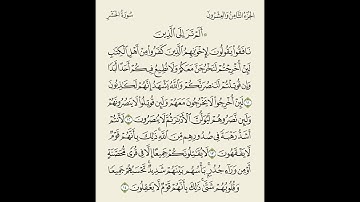 الجزء الثامن والعشرون
سورة الحشر
۞ أَلَمْ تَرَ إِلَى ٱلَّذِينَ
نَافَقُوا۟ يَقُولُونَ لِإِخْوَٰنِهِمُ ٱلَّذِينَ كَفَرُوا۟ مِنْ أَهْلِ ٱلْكِتَٰبِ
لَئِنْ أُخْرِجْتُمْ لَنَخْرُجَنَّ مَعَكُمْ وَلَا نُطِيعُ فِيكُمْ أَحَدًا أَبَدًا
وَإِن قُوتِلْتُمْ لَنَنصُرَنَّكُمْ وَٱللَّهُ يَشْهَدُ إِنَّهُمْ لَكَٰذِبُونَ
۝١١ لَئِنْ أُخْرِجُوا۟ لَا يَخْرُجُونَ مَعَهُمْ وَلَئِن قُوتِلُوا۟ لَا يَنصُرُونَهُمْ
وَلَئِن نَّصَرُوهُمْ لَيُوَلُّنَّ ٱلْأَدْبَٰرَ ثُمَّ لَا يُنصَرُونَ ۝١٢ لَأَنتُمْ
أَشَدُّ رَهْبَةً فِى صُدُورِهِم مِّنَ ٱللَّهِ ذَٰلِكَ بِأَنَّهُمْ قَوْمٌ
لَّا يَفْقَهُونَ ۝١٣ لَا يُقَٰتِلُونَكُمْ جَمِيعًا إِلَّا فِى قُرًى مُّحَصَّنَةٍ
أَوْ مِن وَرَآءِ جُدُرٍۭ بَأْسُهُم بَيْنَهُمْ شَدِيدٌ تَحْسَبُهُمْ جَمِيعًا
وَقُلُوبُهُمْ شَتَّىٰ ذَٰلِكَ بِأَنَّهُمْ قَوْمٌ لَّا يَعْقِلُونَ ۝١٤